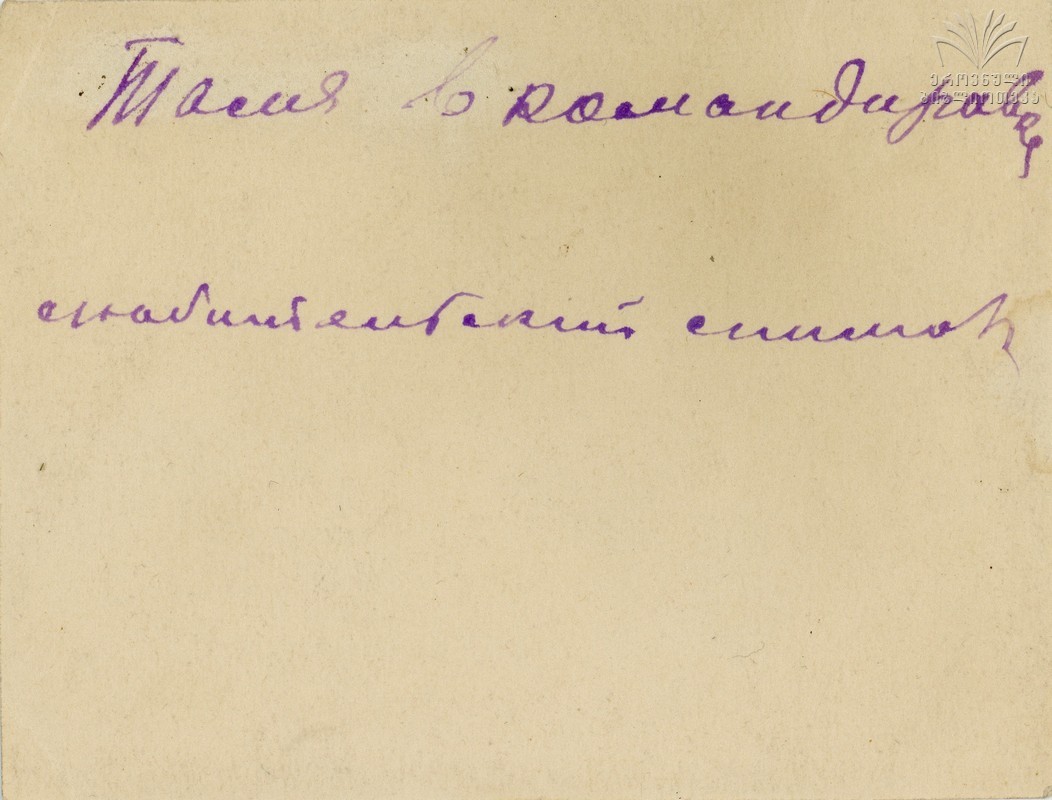 Тасия в командировке
любительский снимок
ეროვნული
ბიბლიოთეკა